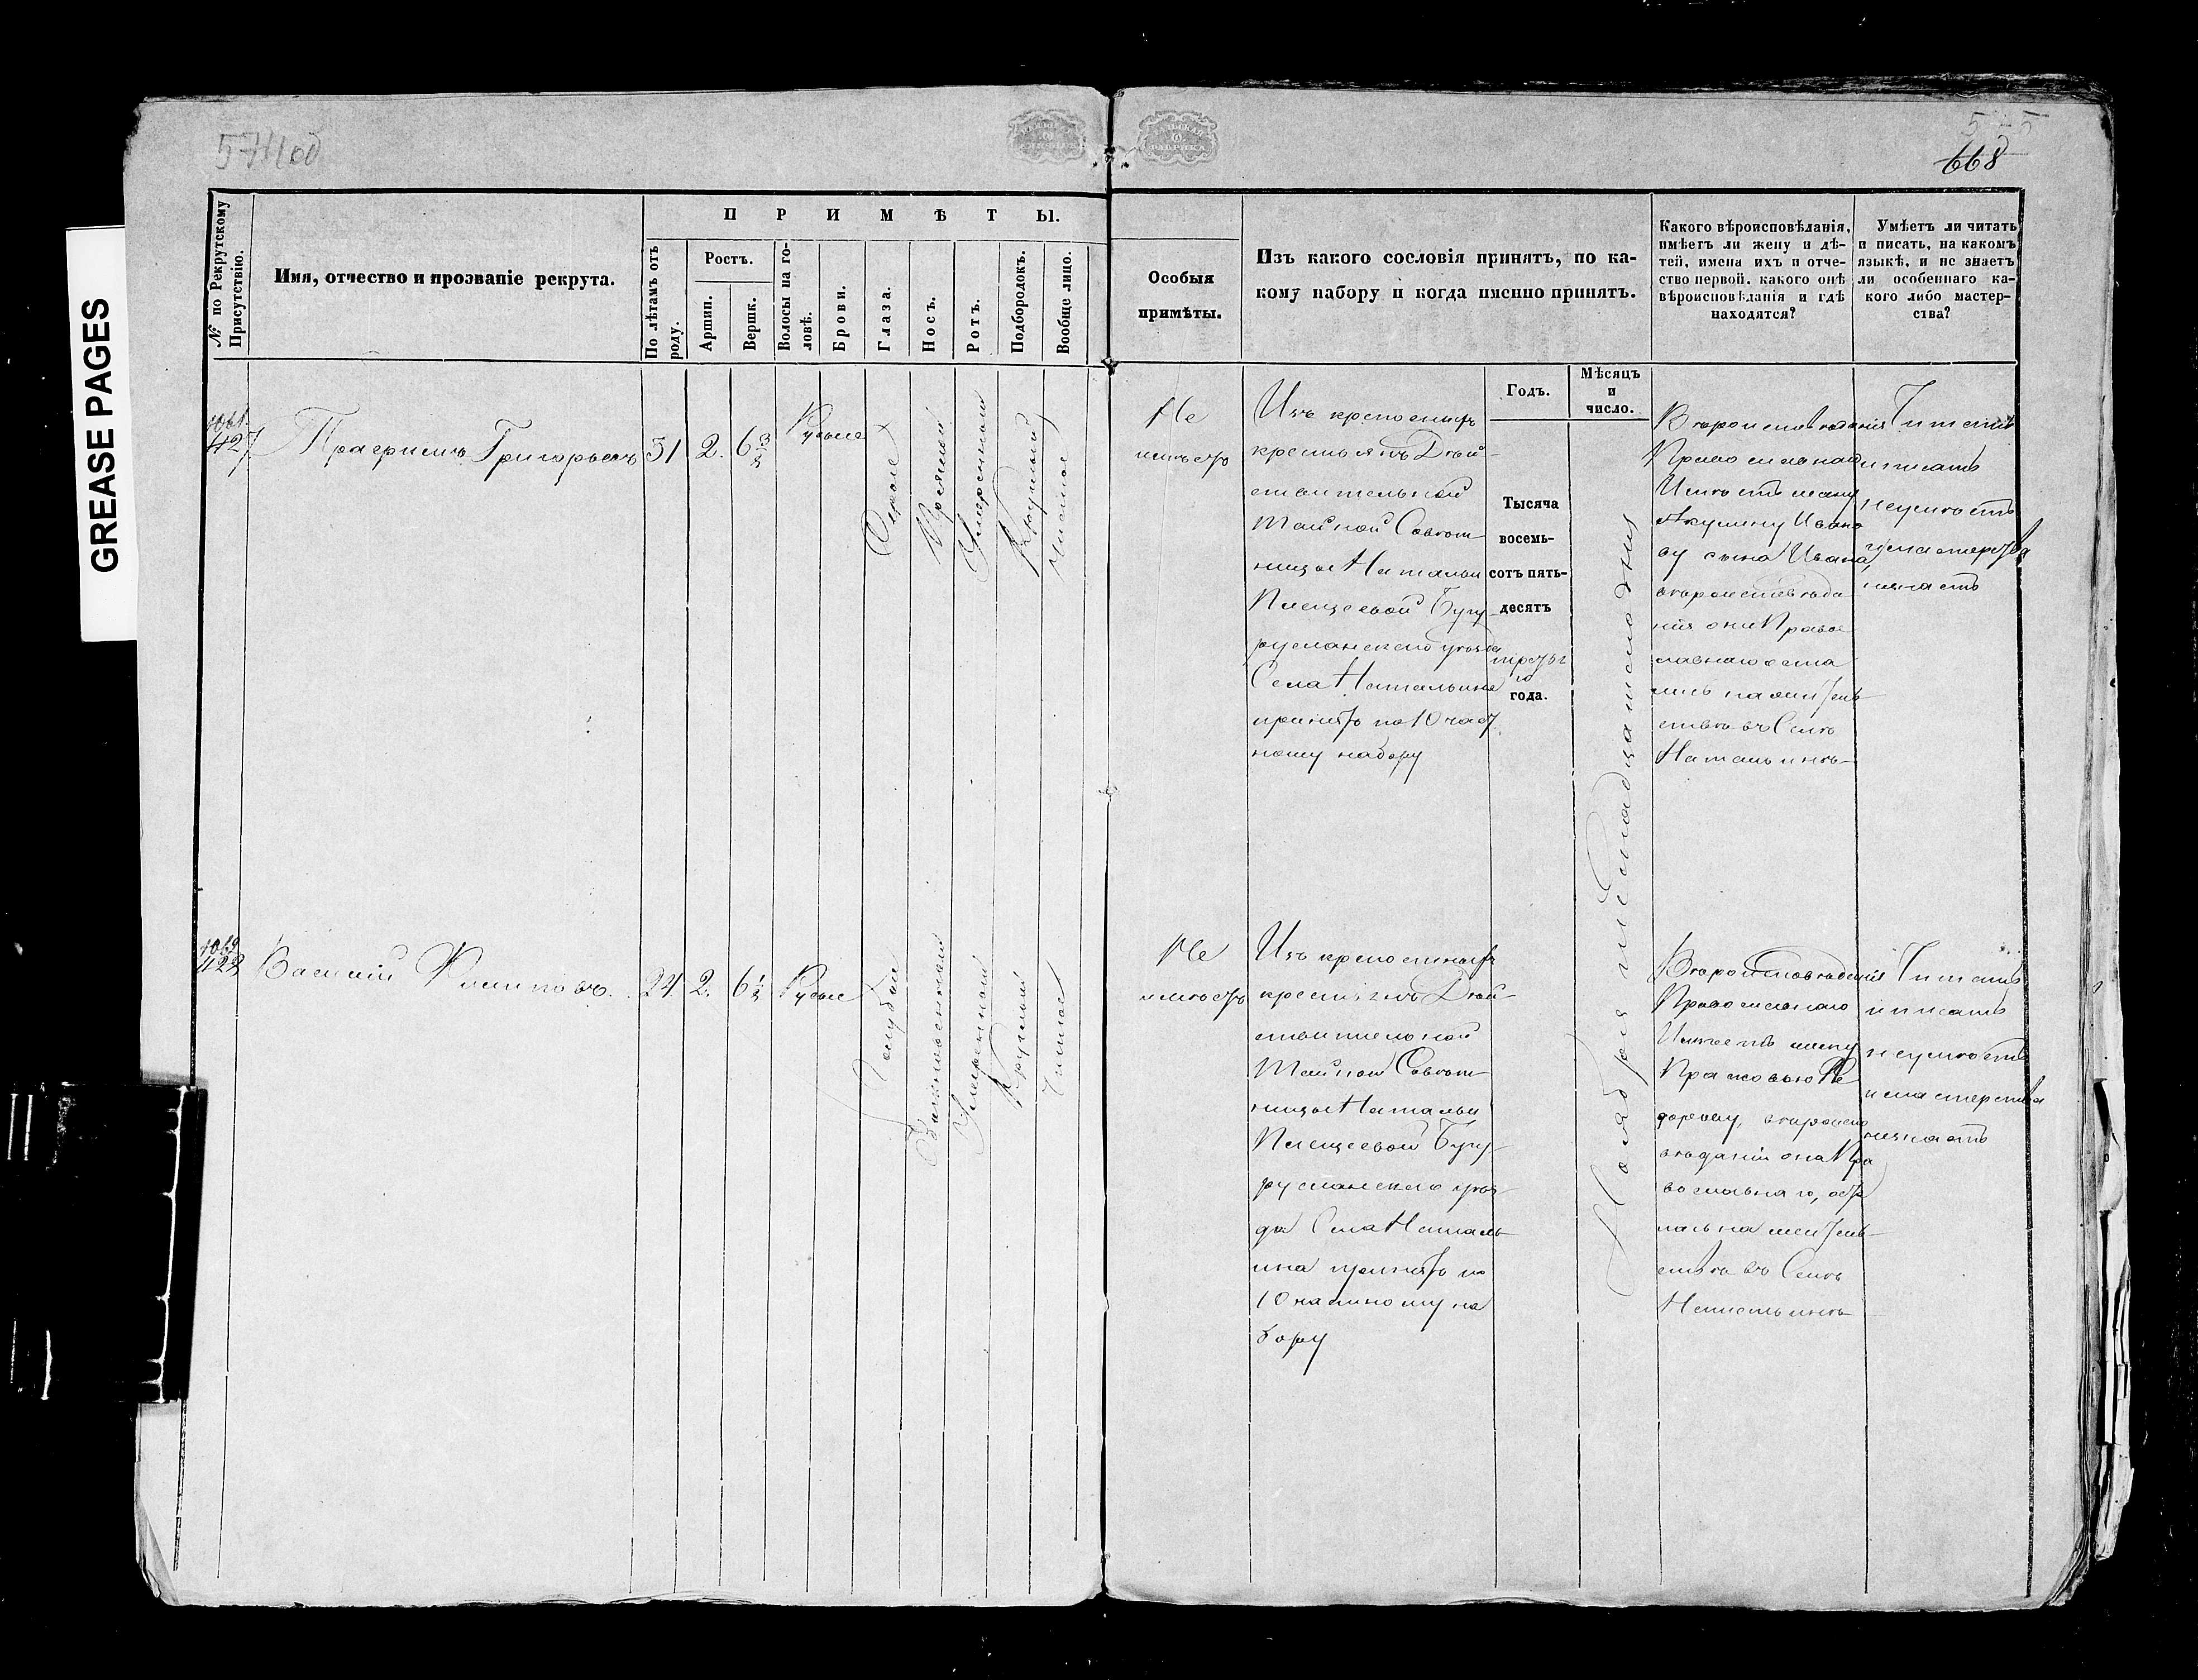 GREASE PAGES
668
№ по Рекрутскому
Присутствію.
Имя, отчество и прозваніе рекрута.
П Р И М Ѣ Т Ы.
По лѣтамъ отъ
роду.
Ростъ.
Аршин.
Вершк.
Волосы на го-
ловѣ.
Брови.
Глаза.
Носъ.
Ротъ.
Подбородокъ.
Вообще лицо.
Особыя
примѣты.
Изъ какого сословія принятъ, по ка-
кому набору и когда именно принятъ.
Какого вѣроисповѣданія,
имѣетъ ли жену и дѣ-
тей, имена ихъ и отче-
ство первой, какого онѣ
вѣроисповѣданія и гдѣ
находятся?
Умѣетъ ли читать
и писать, на какомъ
языкѣ, и не знаетъ
ли особеннаго ка-
кого либо мастер-
ства?
Григорьевъ
31
2.
6
Русые
Прямой
Умеренный
Круглый
Чистое
Не
имѣетъ
Изъ крепостныхъ
крестьянъ Дѣй-
ствительной
Тайной Совѣт
ницы Натальи
Плещеевой Бугу-
русланского уѣзда
Села Натальина
принятъ по 10 част
ному набору
Годъ.
Тысяча
восемь-
сотъ пять-
десятъ
третьг
го
года.
Мѣсяцъ
и
число.
Ноября шестнадцатого дня
Вѣроисповѣданія
Православнаго
Имѣетъ жену
Акулину Ивано
ву сына Ивана,
вѣроисповѣда
нія они Правос
лавнаго оста
лись на житель-
ствѣ въ Селѣ
Натальинѣ
Читать
и писать
неумѣетъ
и мастерства
незнаетъ
Василій Филиповъ.
24
2.
6 1/2
Русые
Голубые
Обыкновенный
Умеренный
Круглый
Чистое
Не
имѣетъ
Изъ крепостныхъ
крестьянъ Дѣй-
ствительной
Тайной Совѣт-
ницы Натальи
Плещеевой Бугу-
русланского уѣз-
да Села Наталь-
ина принятъ по
10 частному на
бору
Вѣроисповѣданія
Православнаго
Имѣетъ жену
Прасковью Фе
дорову, вѣроиспо
вѣданія она Пра
вославнаго, оста
лась на житель-
ствѣ въ Селѣ
Натальинѣ
Читать
и писать
неумѣетъ
и мастерства
незнаетъ